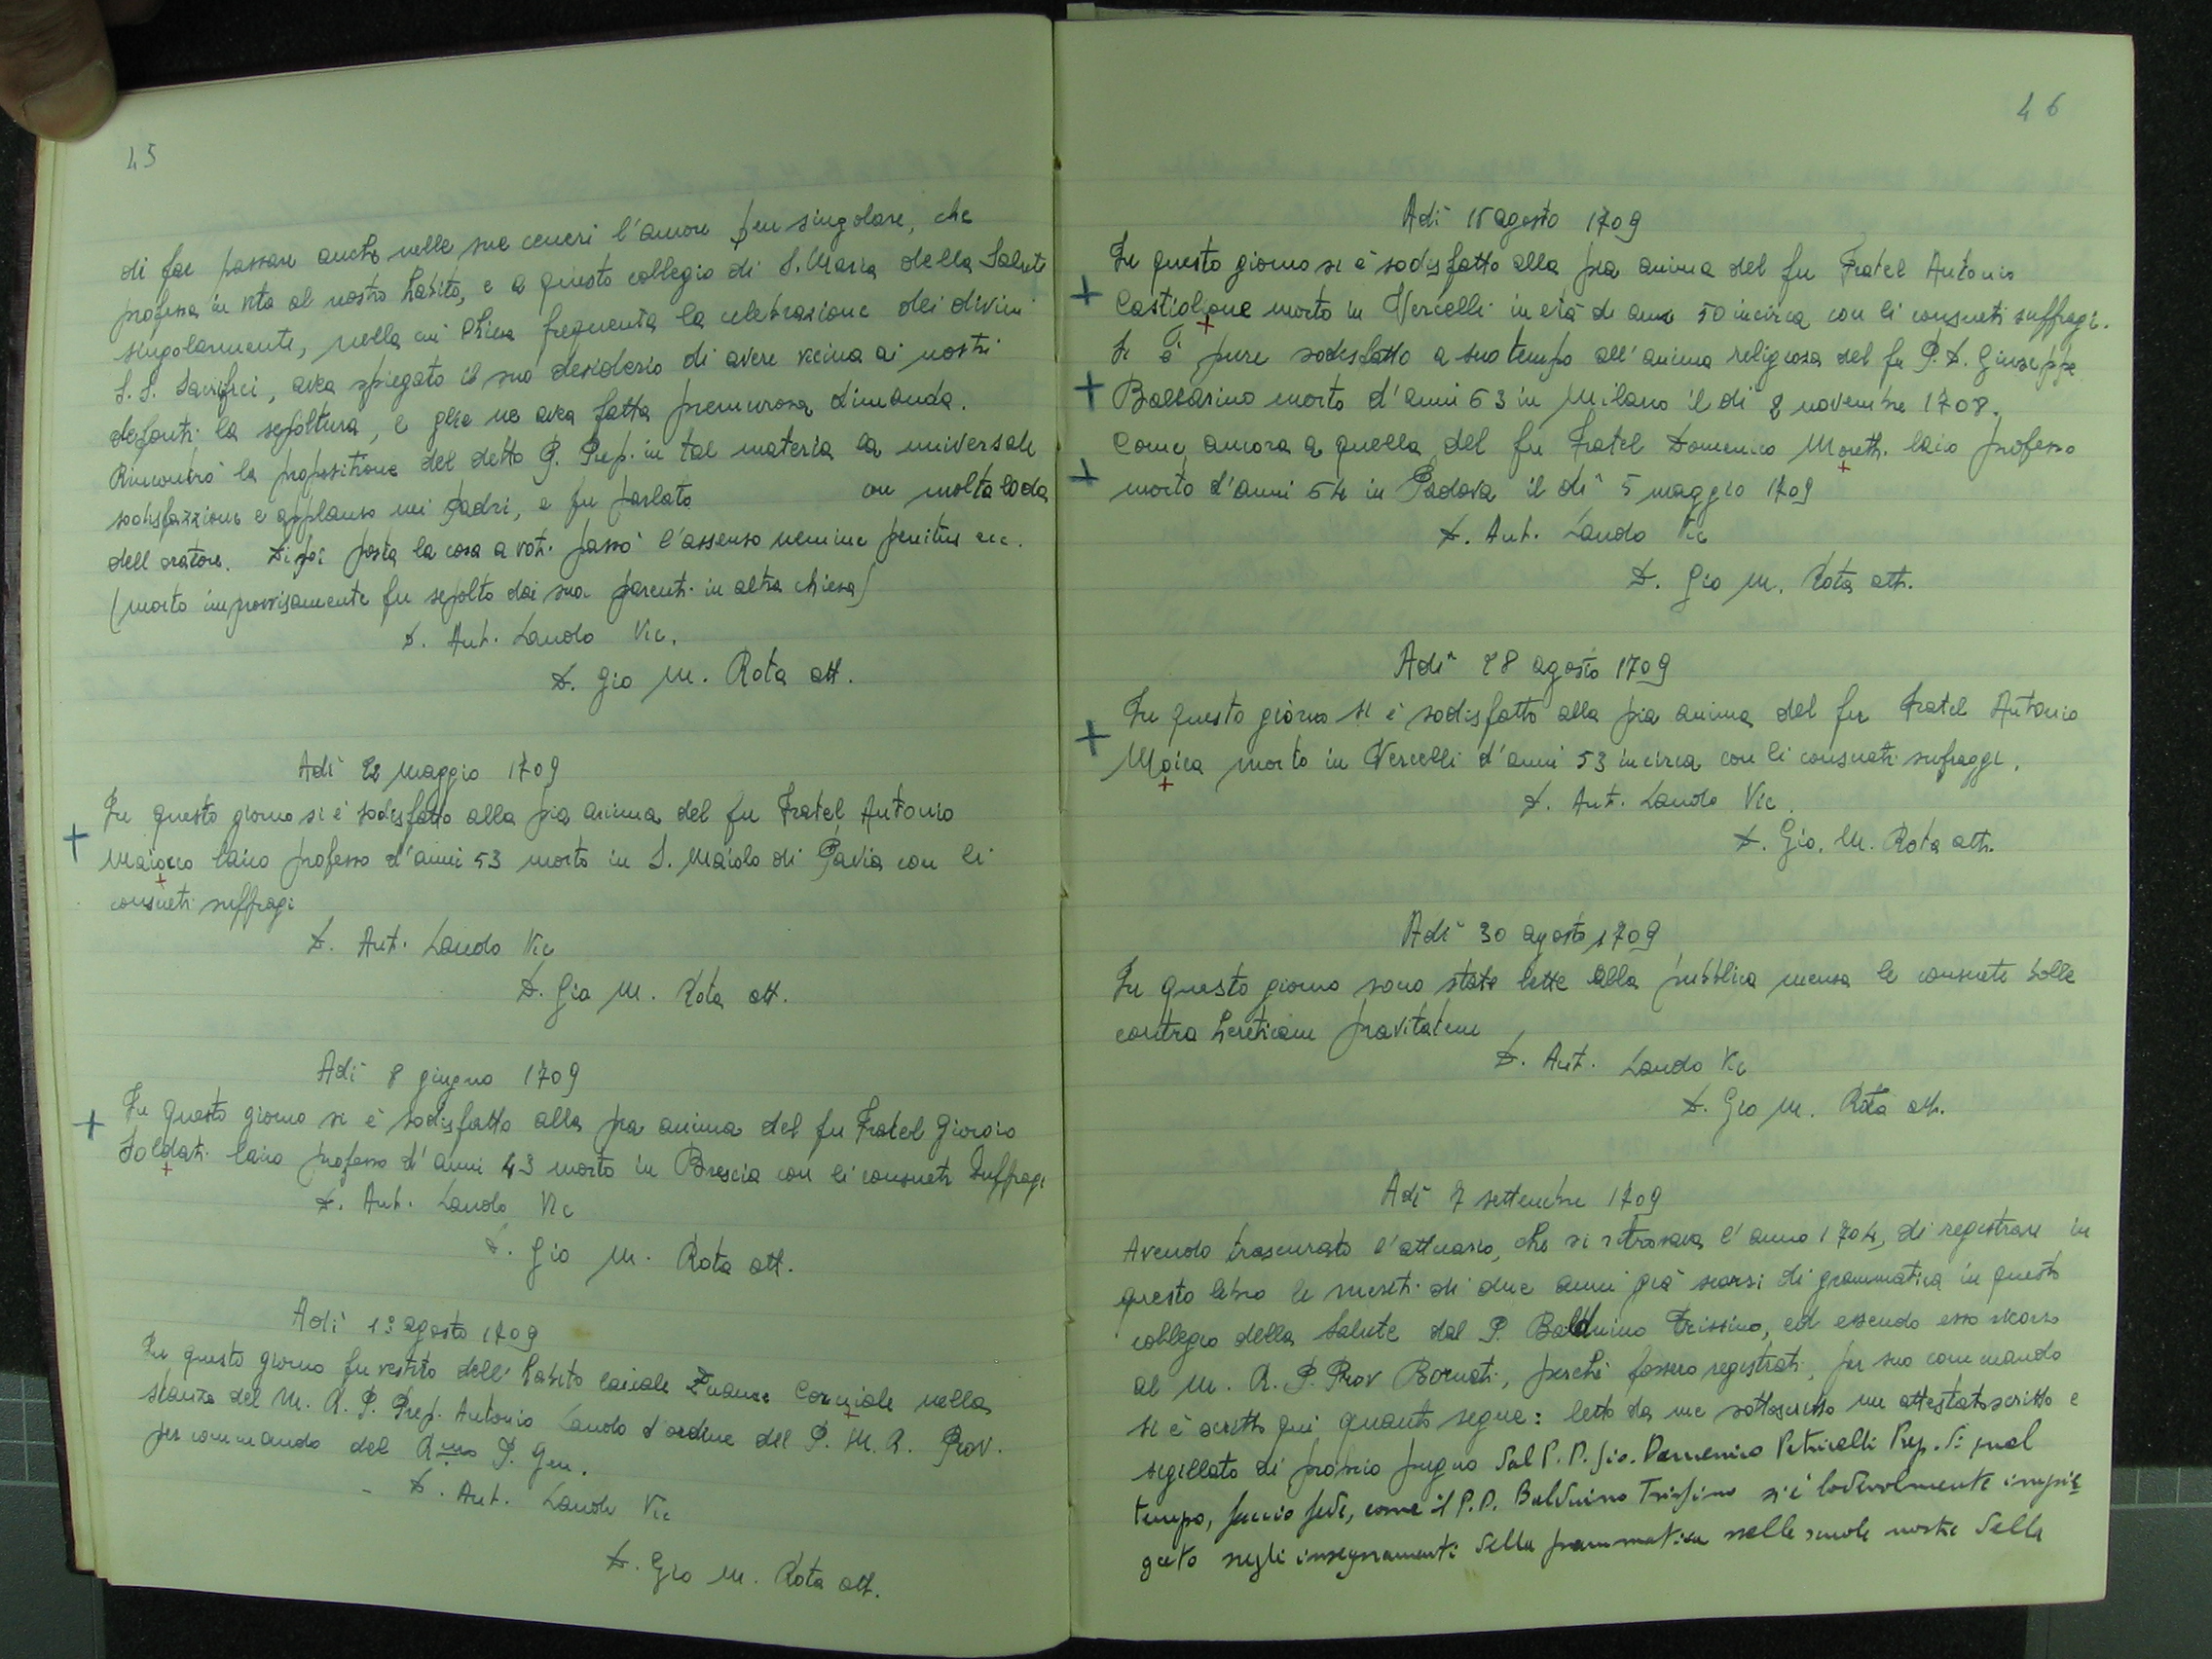 45
di far passare anche nelle sue ceneri l'amore più singolare, che
professa in vita al nostro habito, e a questo collegio di S. Maria della Salute
singolarmente, nella cui chiesa frequenta la celebrazione dei divini
S. S. Sacrifici, avea spiegato il suo desiderio di avere vicina ai nostri
defonti la sepoltura, e gliene avea fatta premurosa dimanda.
Rincontrò la propositione del detto P. Prep. in tal materia la universale
sodisfazzione e applauso nei padri, e fu parlato con molta loda
dell'oratore. Di poi posta la cosa a voti passò l'assenso nemine penitus ecc.
(morto improvvisamente fu sepolto dai suoi parenti in altra chiesa)
D. Ant. Lando Vic.
D. Gio M. Rota att.
Adì 22 maggio 1709
In questo giorno si è sodisfatto alla pia anima del fu Fratel Antonio
Maiocco laico professo d'anni 53 morto in S. Maiolo di Pavia con li
consueti suffragi
D. Ant. Lando Vic
D. Gio M. Rota att.
Adì 8 giugno 1709
In questo giorno si è sodisfatto alla pia anima del fu Fratel Giorgio
Soldati laico professo d'anni 43 morto in Brescia con li consueti suffragi
D. Ant. Lando Vic
D. Gio M. Rota att.
Adì 1° agosto 1709
In questo giorno fu vestito dell'habito laicale Zuanne Corniale nella
stanza del M. R. P. Prep. Antonio Lando d'ordine del P. M. R. Prov.
per commando del R.mo P. Gen.
D. Ant. Lando Vic
D. Gio M. Rota att.
46
Adì 15 agosto 1709
In questo giorno si è sodisfatto alla pia anima del fu Fratel Antonio
Castiglione morto in Vercelli in età di anni 50 incirca con li consueti suffragi.
Si è pure sodisfatto a suo tempo all'anima religiosa del fu P. D. Giuseppe
Ballarino morto d'anni 63 in Milano il dì 2 novembre 1708.
Come ancora a quella del fu Fratel Domenico Moretti laico professo
morto d'anni 54 in Padova il dì 5 maggio 1709
D. Ant. Lando Vic
D. Gio M. Rota att.
Adì 28 agosto 1709
In questo giorno si è sodisfatto alla pia anima del fu Fratel Antonio
Moica morto in Vercelli d'anni 53 incirca con li consueti sufraggi.
D. Ant. Lando Vic.
D. Gio. M. Rota att.
Adì 30 agosto 1709
In questo giorno sono state lette alla pubblica mensa le consuete bolle
contra hereticam pravitatem
D. Ant. Lando Vic
D. Gio M. Rota att.
Adì 7 settembre 1709
Avendo trascurato l'attuario, che si ritrovava l'anno 1704, di registrare in
questo libro li meriti di due anni già scorsi di grammatica in questo
collegio della Salute dal P. Balduino Trissino, ed essendo esso ricorso
al M. R. P. Prov Bornati, perché fossero registrati, per suo commando
si è scritto qui quanto segue: letto da me sottoscritto un attestato scritto e
sigillato di proprio pugno dal P. D. Gio. Domenico Petricelli Prep. di quel
tempo, faccio fede, come il P. D. Balduino Trissino si è lodevolmente impie
gato negli insegnamenti della grammatica nelle scuole nostre della